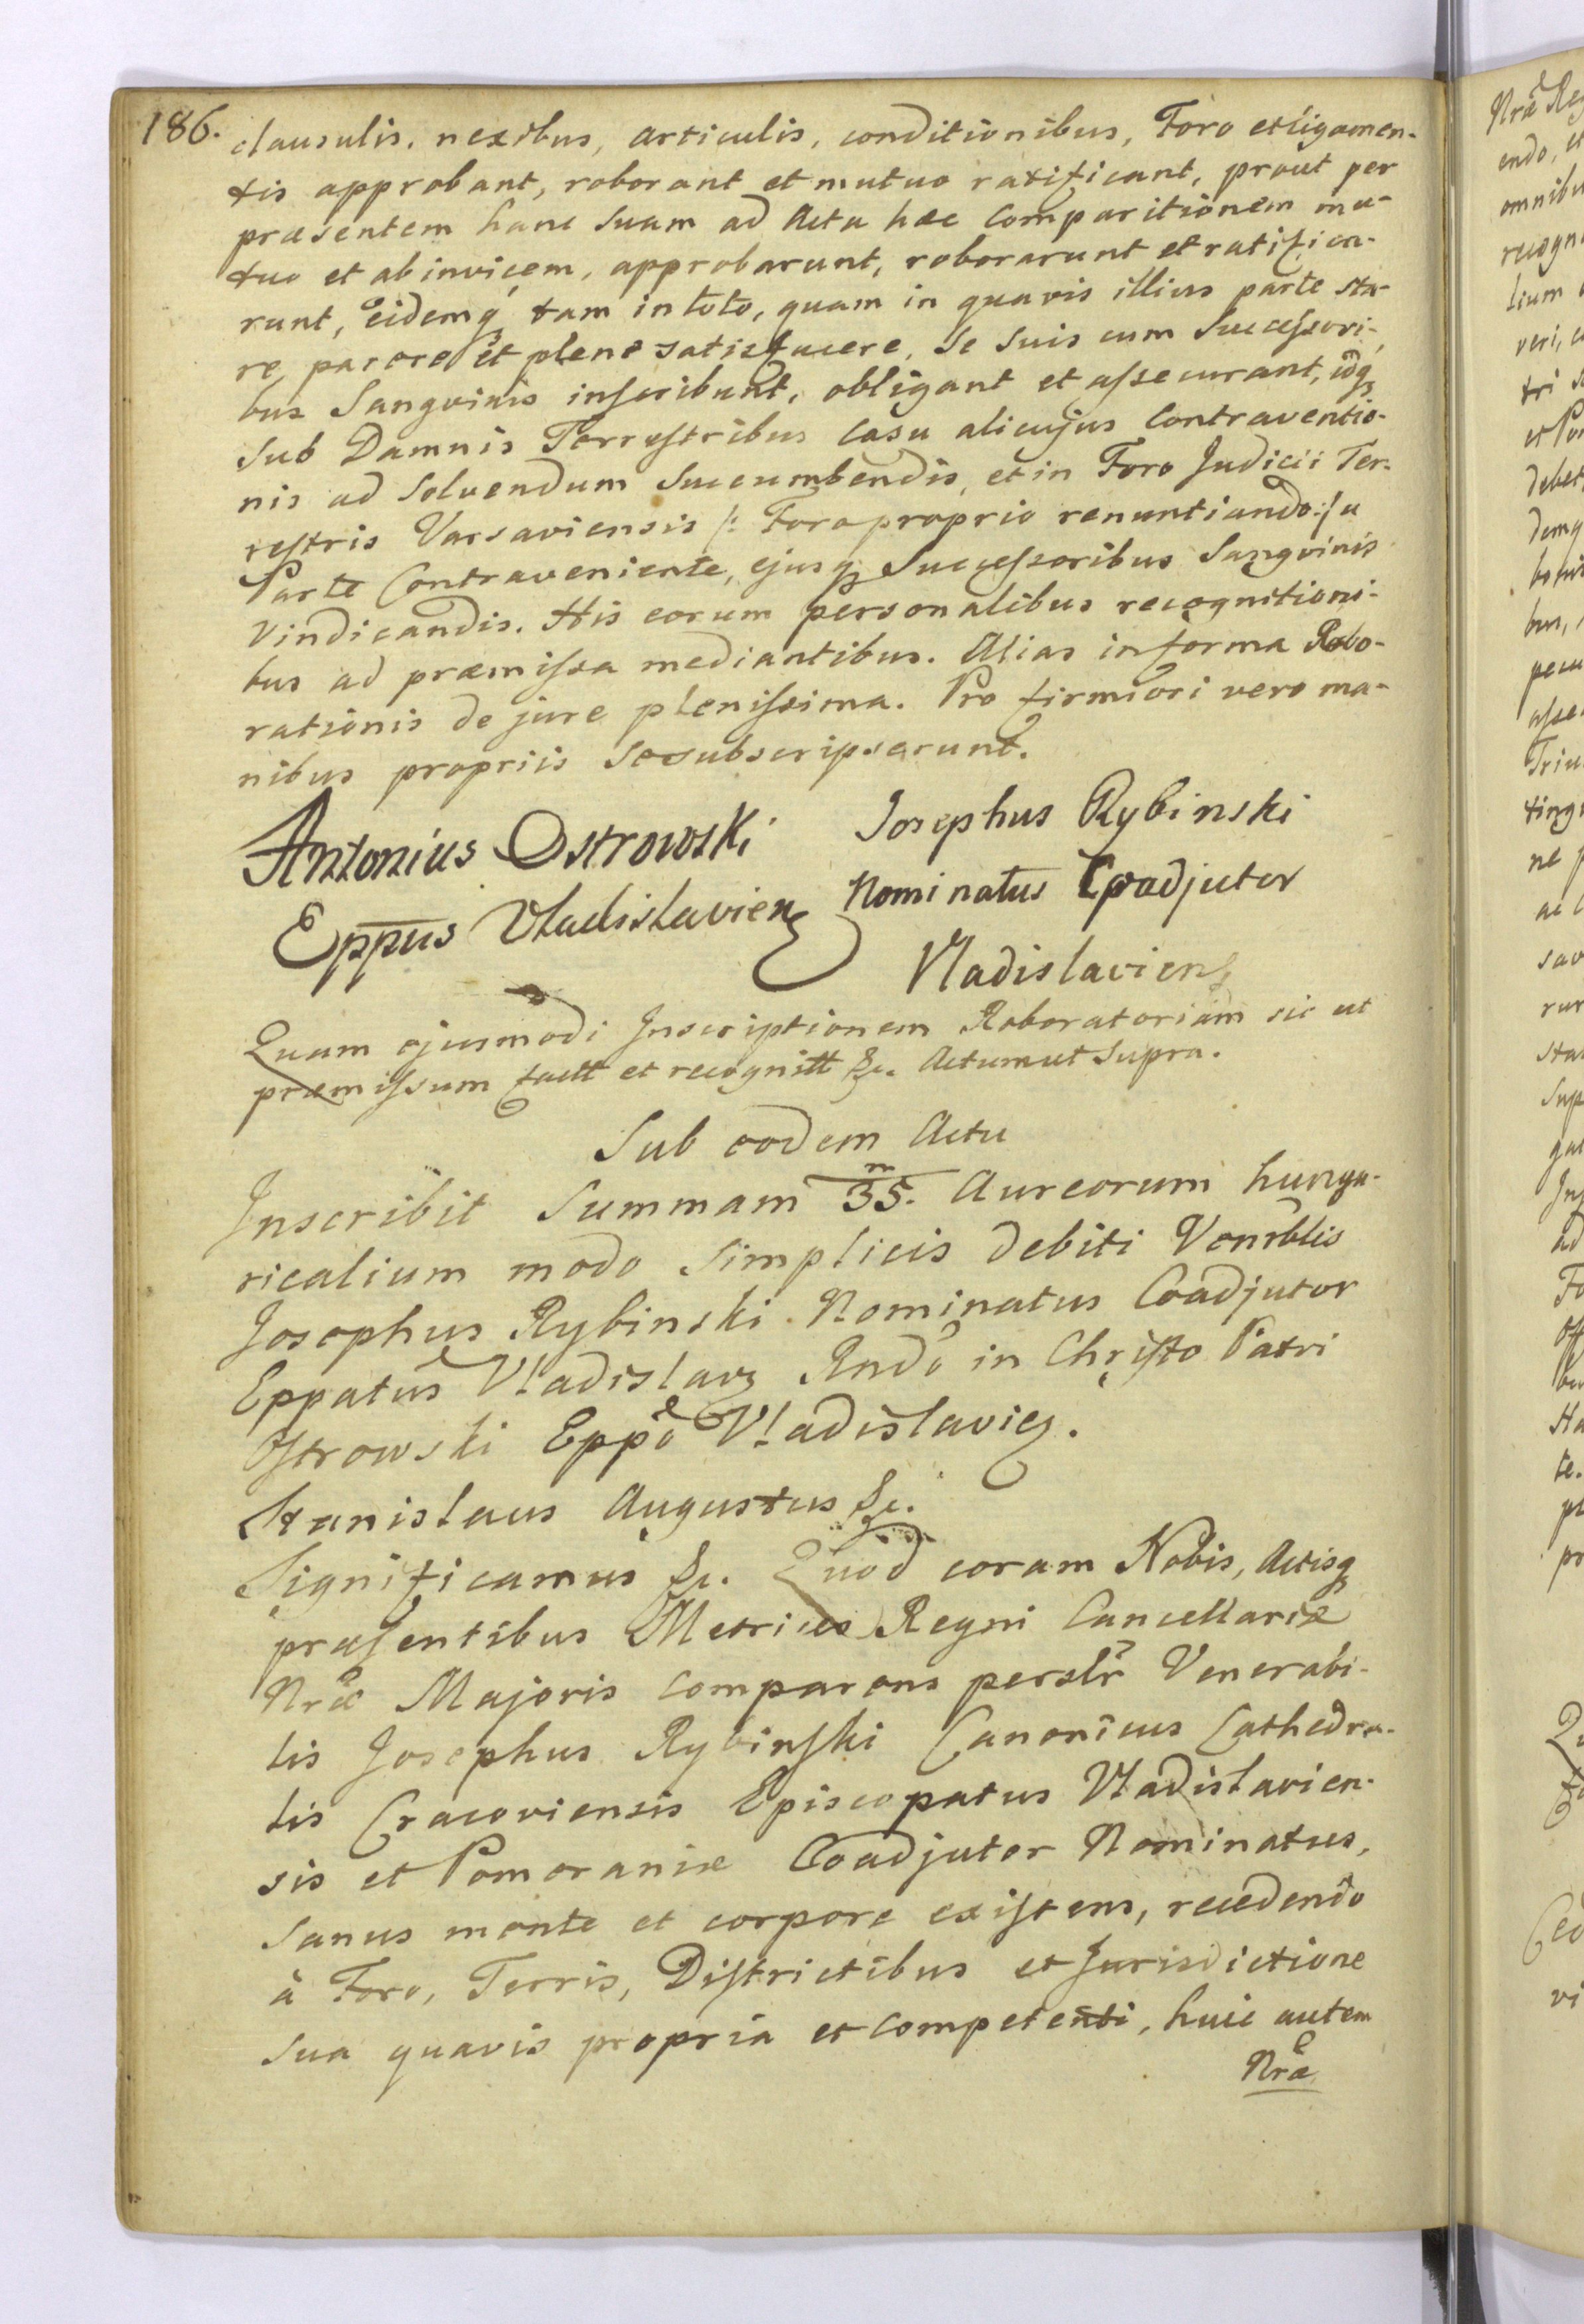 186.
clausulis, nexibus, articulis, conditionibus, Foro et ligamen-
tis approbant, roborant et mutuo ratificant, prout per
præsentem hanc Suam ad Acta hæc Comparitionem mu-
tuo et ab invicem, approbarunt, roborarunt et ratifica-
runt, Eidemq tam in toto, quam in quavis illius parte sta-
re, parere et plene satisfacere, Se Suis cum Succeſsori-
bus Sangvinis inſcribunt, obligant et aſsecurant, idq
Sub Damnis Terreſtribus Casu alicujus Contraventio-
nis ad Solvendum Succumbendis, et in Foro Judicii Ter-
reſtris Varsaviensis /: Foro proprio renuntiando :/ a
Parte Contraveniente, ejusq Succeſsoribus Sangvinis
Vindicandis. His eorum Personalibus recognitioni-
bus ad præmiſsa mediantibus. Alias in forma Robo-
rationis de jure pleniſsima. Pro firmiori vero ma-
nibus propriis Se subscripserunt.
Antonius Ostrowski Josephus Rybinski
Eppus Vladislavien Nominatus Coadjutor
Vladislaviens
Quam ejusmodi Inscriptionem Roboratoriam sic ut
præmiſsum factt et recognitt &c. Actum ut Supra.
Sub eodem Actu
Inscribit Summam 35.m Aureorum hunga-
ricalium modo Simplicis debiti Venrblis
Josephus Rybinski Nominatus Coadjutor
Eppatus Vladislavs Rndo in Chriſto Patri
Oſtrowski Eppo Vladislavien.
Stanislaus Augustus &c.
Significamus &c. Quod coram Nobis, Actisq
præſentibus Metrices Regni Cancellariæ
Nræ Majoris Comparens persler Venerabi-
lis Josephus Rybinſki Canonicus Cathedra-
lis Cracoviensis Episcopatus Vladislavien-
sis et Pomoraniæ Coadjutor Nominatus,
Sanus mente et corpore exiſtens, recedendo
à Foro, Terris, Diſtrictibus et Jurisdictione
Sua quavis propria et Competenti, huic autem
Nræ